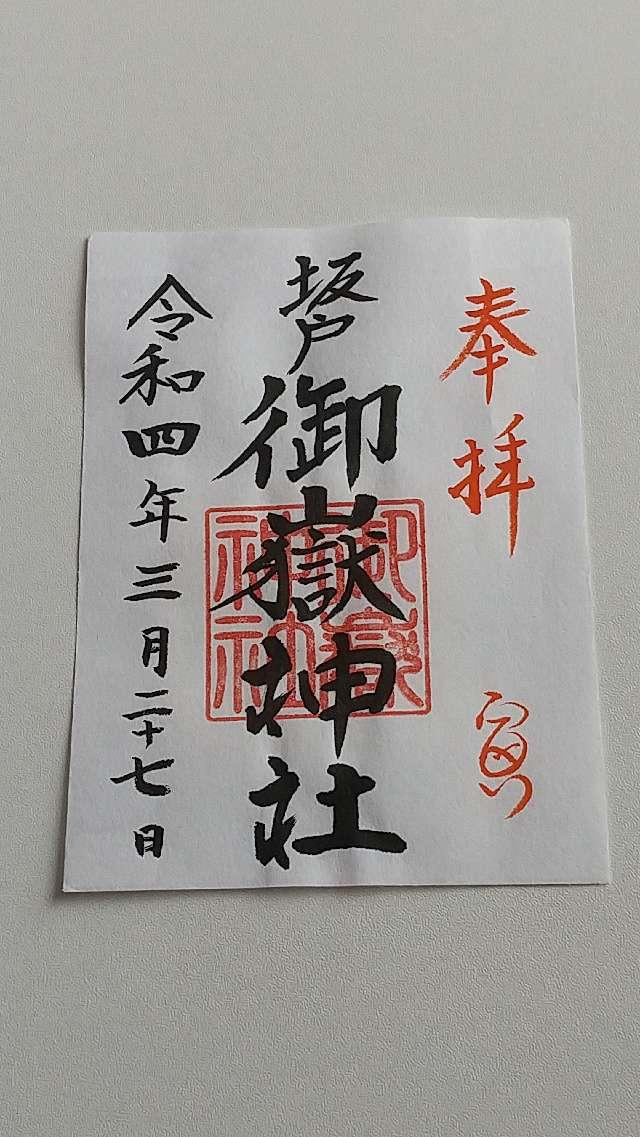 奉拝
坂戸
御嶽神社
御嶽
神社
令和四年三月二十七日